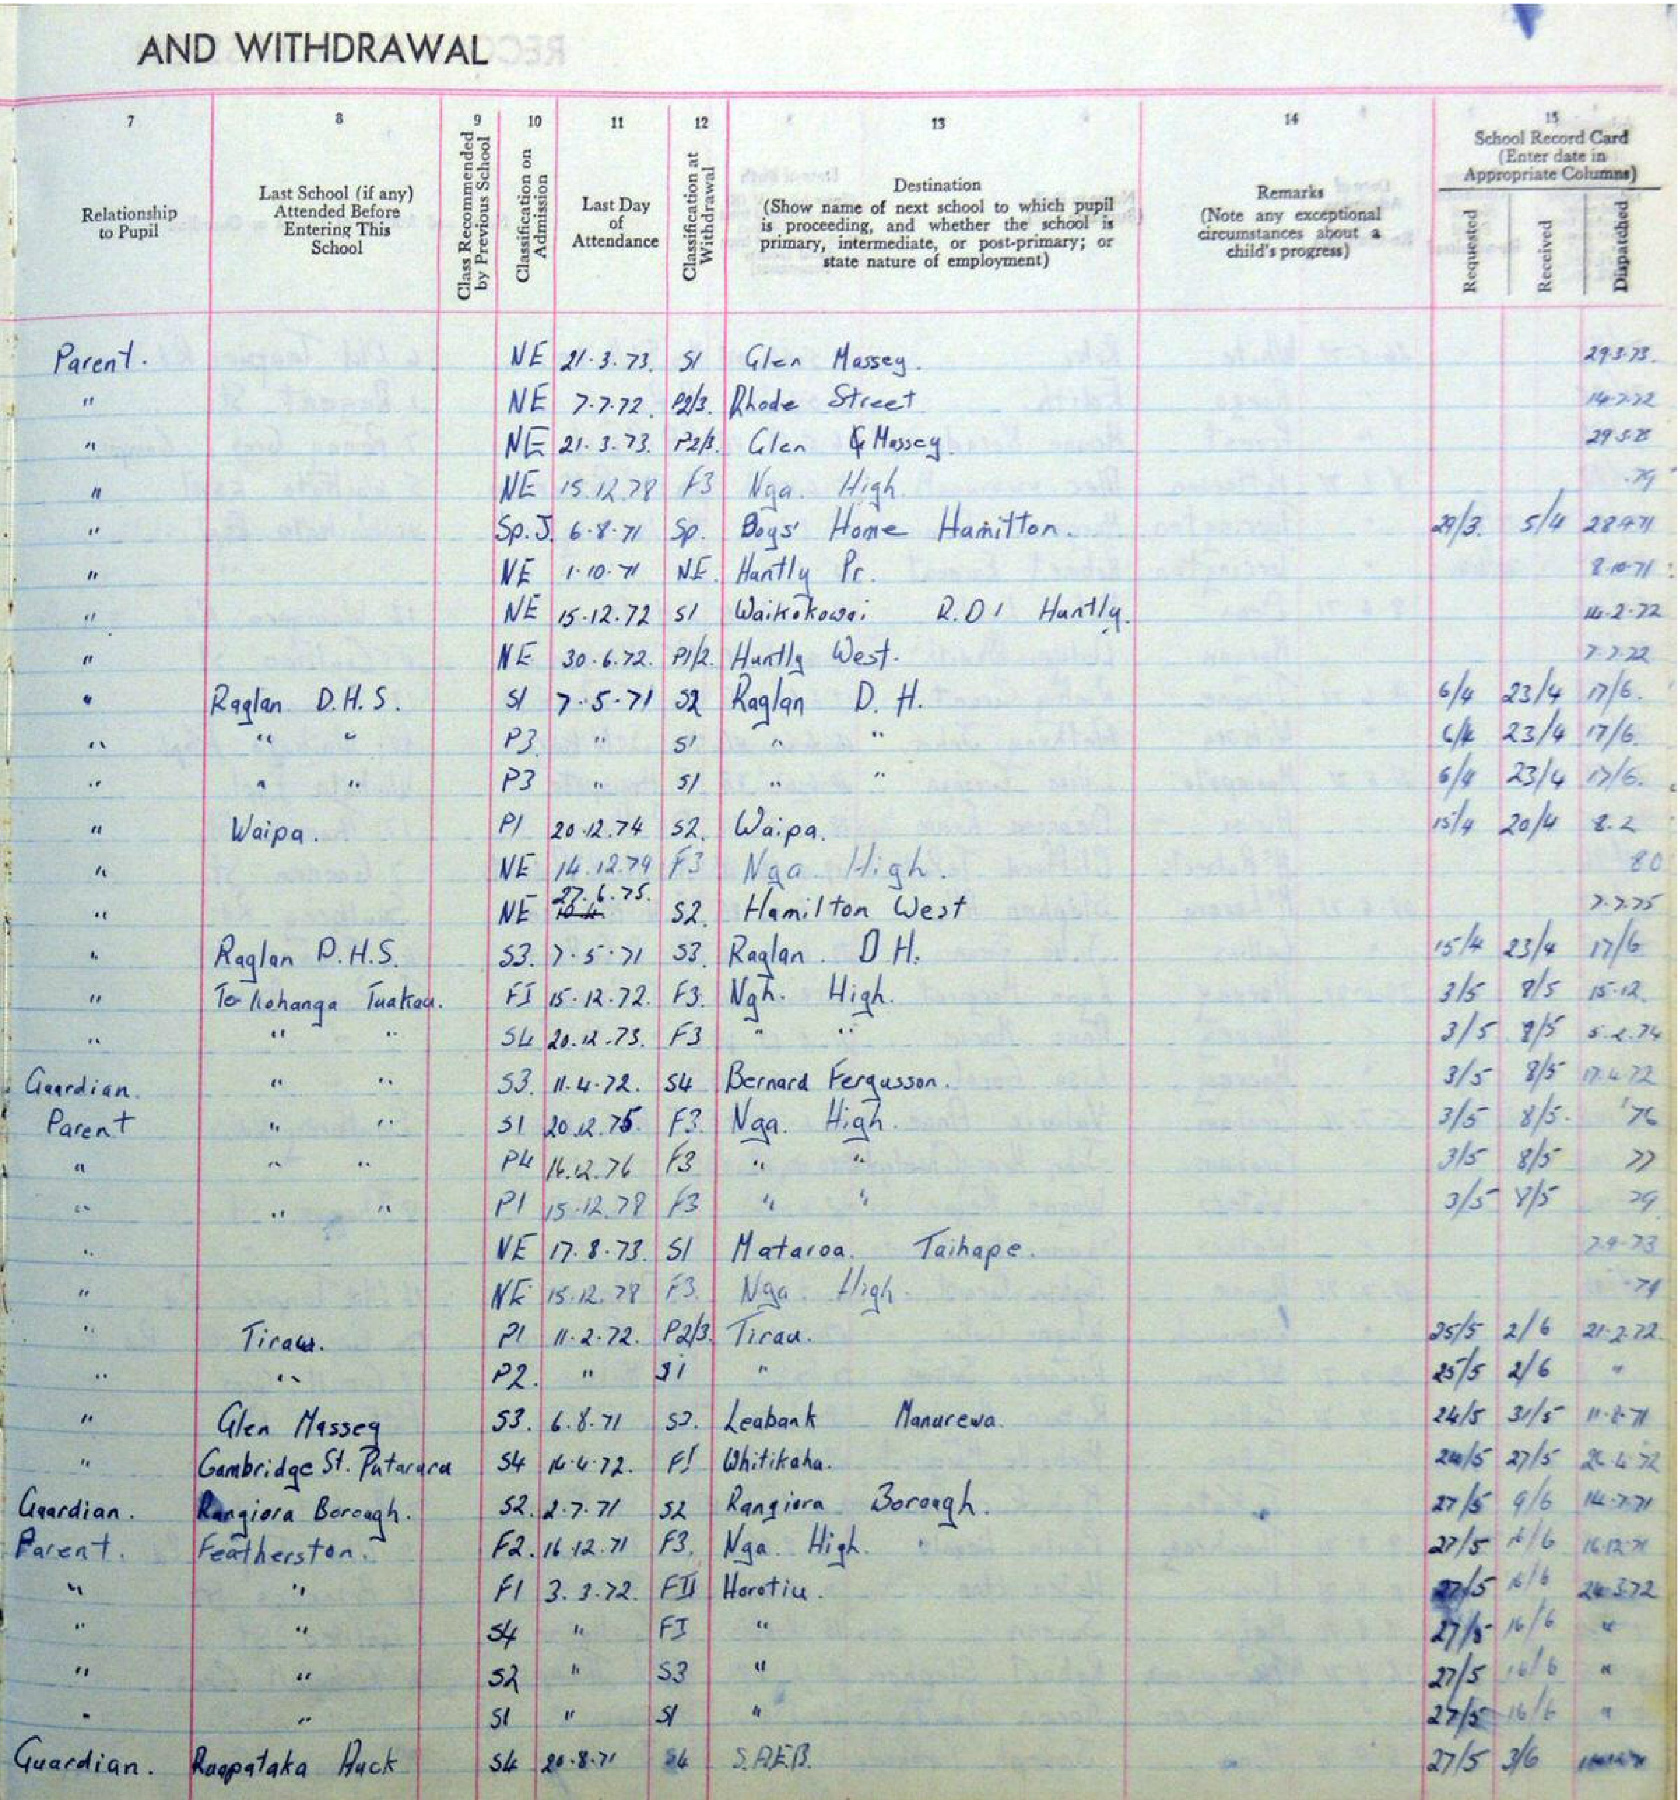 AND WITHDRAWAL
7 8 9 10 11 12 13 14 15
Relationship to Pupil
Last School (if any) Attended Before Entering This School
Class Recommended by Previous School
Classification on Admission
Last Day of Attendance
Classification at Withdrawal
Destination (Show name of next school to which pupil is proceeding, and whether the school is primary, intermediate, or post-primary; or state nature of employment)
Remarks (Note any exceptional circumstances about a child's progress)
School Record Card (Enter date in Appropriate Columns)
Requested Received Dispatched
Parent. NE 21.3.73. S1 Glen Massey. 29.3.73.
" NE 7.7.72. P2/3. Rhode Street 14.7.72
" NE 21.3.73. P2/3. Glen Massey.
" NE 15.12.78 F3 Nga. High. .79
" Sp. J. 6.8.71 Sp. Boys' Home Hamilton. 29/3. 5/4
" NE 1.10.71 NE. Huntly Pr. 8.10.71
" NE 15.12.72 S1 Waikokowai R.D.1 Huntly. 14.2.72
" NE 30.6.72. P1/2. Huntly West. 7.7.72
" Raglan D.H.S. S1 7.5.71 S2 Raglan D.H. 6/4 23/4 17/6.
" " " P3 " S1 " " 6/4 23/4 17/6.
" " " P3 " S1 " " 6/4 23/4 17/6.
" Waipa. P1 20.12.74 S2. Waipa. 15/4 20/4 8.2
" NE 14.12.79 F3 Nga. High. 80
" NE 27.6.75. S2. Hamilton West 7.7.75
" Raglan D.H.S. S3. 7.5.71 S3. Raglan. D H. 15/4 23/4 17/6
" Te Kohanga Tuakau. FI 15.12.72. F3. Ngh. High. 3/5 8/5 15.12.
" " " S4 20.12.73. F3 " " 3/5 8/5 5.2.74
Guardian. " " S3. 11.4.72. S4 Bernard Fergusson. 3/5 8/5 17.4.72
Parent " " S1 20.12.75 F3. Nga. High. 3/5 8/5. '76
" " " P4 16.12.76 F3 " " 3/5 8/5 77
" " " P1 15.12.78 F3 " " 3/5 8/5 79
" NE 17.8.73. S1 Mataroa. Taihape. 7.9.73
" NE 15.12.78 F3. Nga. High. .79
" Tirau. P1 11.2.72. P2/3. Tirau. 25/5 2/6 21.2.72
" " P2. " S1 " 25/5 2/6 "
" Glen Massey S3. 6.8.71 S3. Leabank Manurewa. 24/5 31/5 11.8.71
" Cambridge St. Putaruru S4 14.4.72. F1 Whitikaha. 24/5 27/5 26.4.72
Guardian. Rangiora Borough. S2. 2.7.71 S2 Rangiora Borough. 27/5 9/6 14.7.71
Parent. Featherston. F2. 16.12.71 F3. Nga. High. 27/5 16/6 16.12.71
" " F1 3.3.72. FII Horotiu. 27/5 16/6 24.3.72
" " S4 " FI " 27/5 16/6 "
" " S2 " S3 " 27/5 16/6 "
" " S1 " S1 " 27/5 16/6 "
Guardian. Huck S4 20.8.71 S4 27/5 3/6